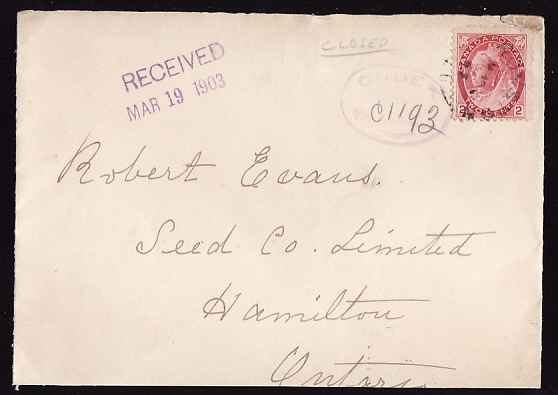 RECEIVED
MAR 19 1903
CLOSED
CANADA POSTAGE
2 CENTS 2
Robert Evans.
Seed Co. Limited
Hamilton
Ontario